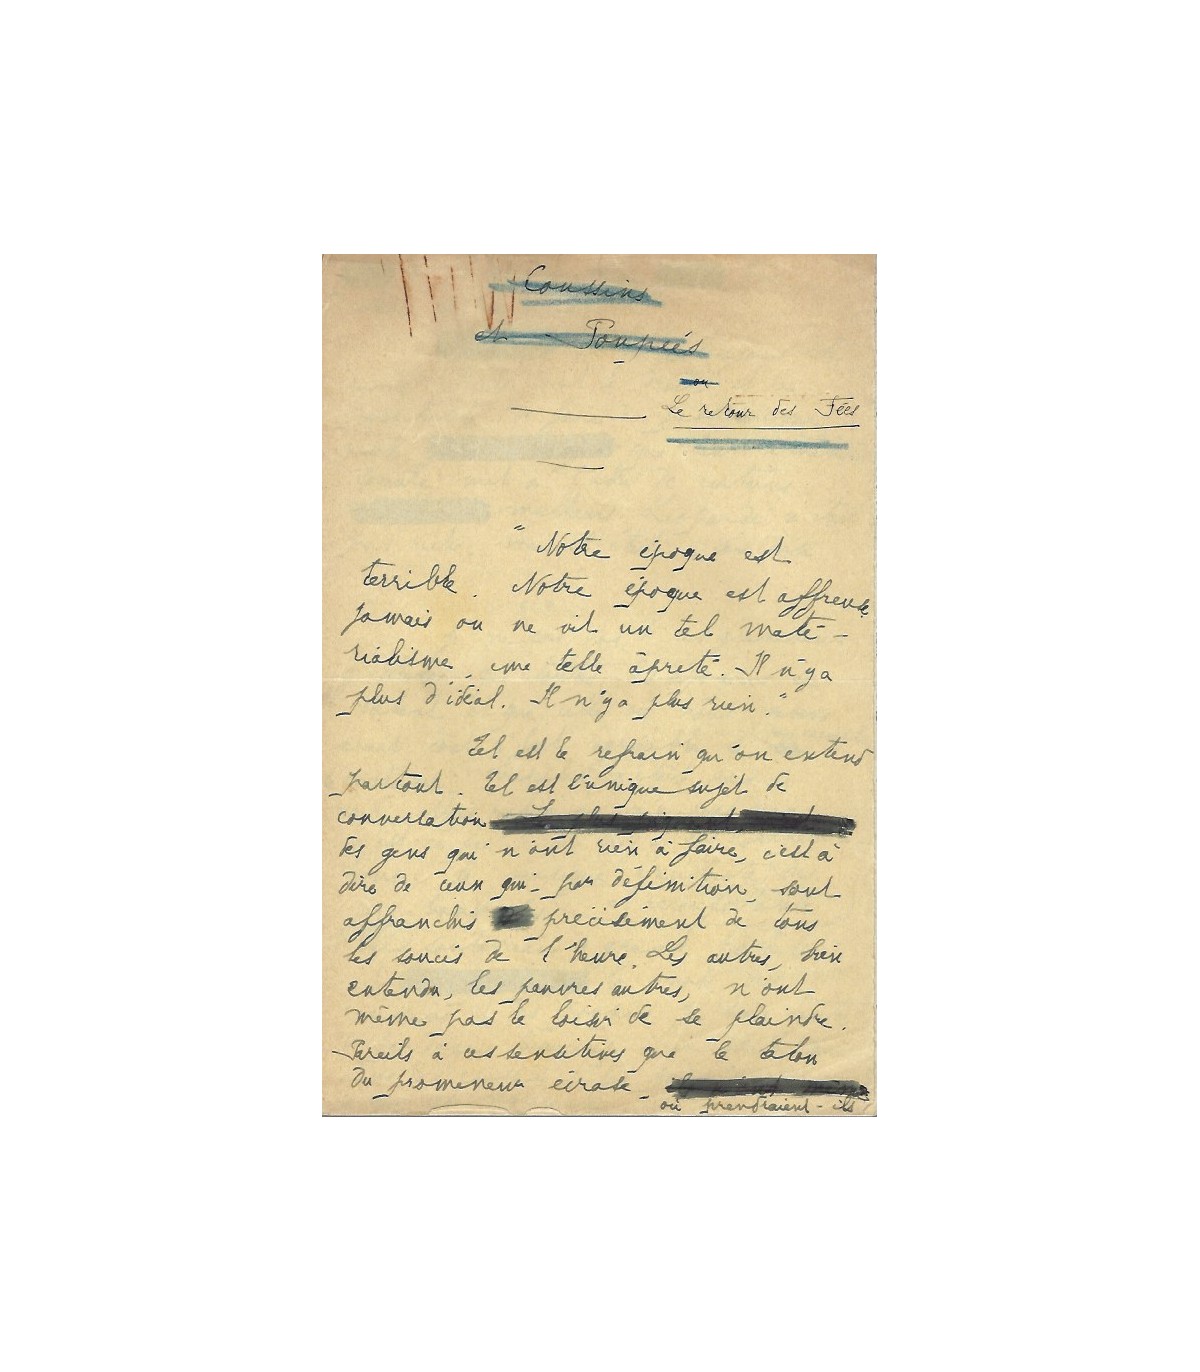 Coussins
et Poupées
ou
Le retour des Fées
"Notre époque est
terrible. Notre époque est affreuse.
Jamais on ne vit un tel maté-
rialisme, une telle âpreté. Il n'y a
plus d'idéal. Il n'y a plus rien."
Tel est le refrain qu'on entend
partout. Tel est l'unique sujet de
conversation
des gens qui n'ont rien à faire, c'est à
dire de ceux qui, par définition, sont
affranchis précisément de tous
les soucis de l'heure. Les autres, bien
entendu, les pauvres autres, n'ont
même pas le loisir de se plaindre.
Pareils à ces sensitives que le talon
du promeneur écrase,
où prendraient-ils